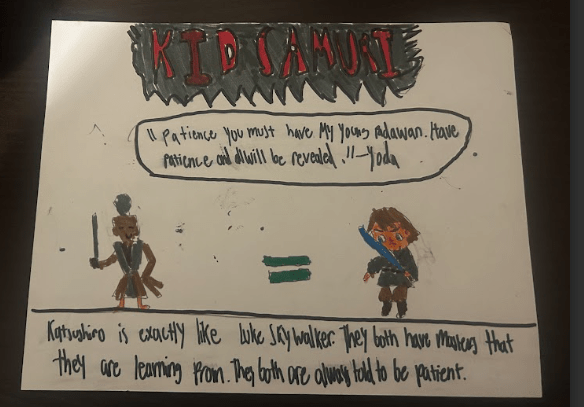 KID SAMURI
"Patience you must have My young Padawan. Have
patience and all will be revealed." -Yoda
=
Katsushiro is exactly like Luke Skywalker. They both have Masters that
they are learning from. They both are always told to be patient.